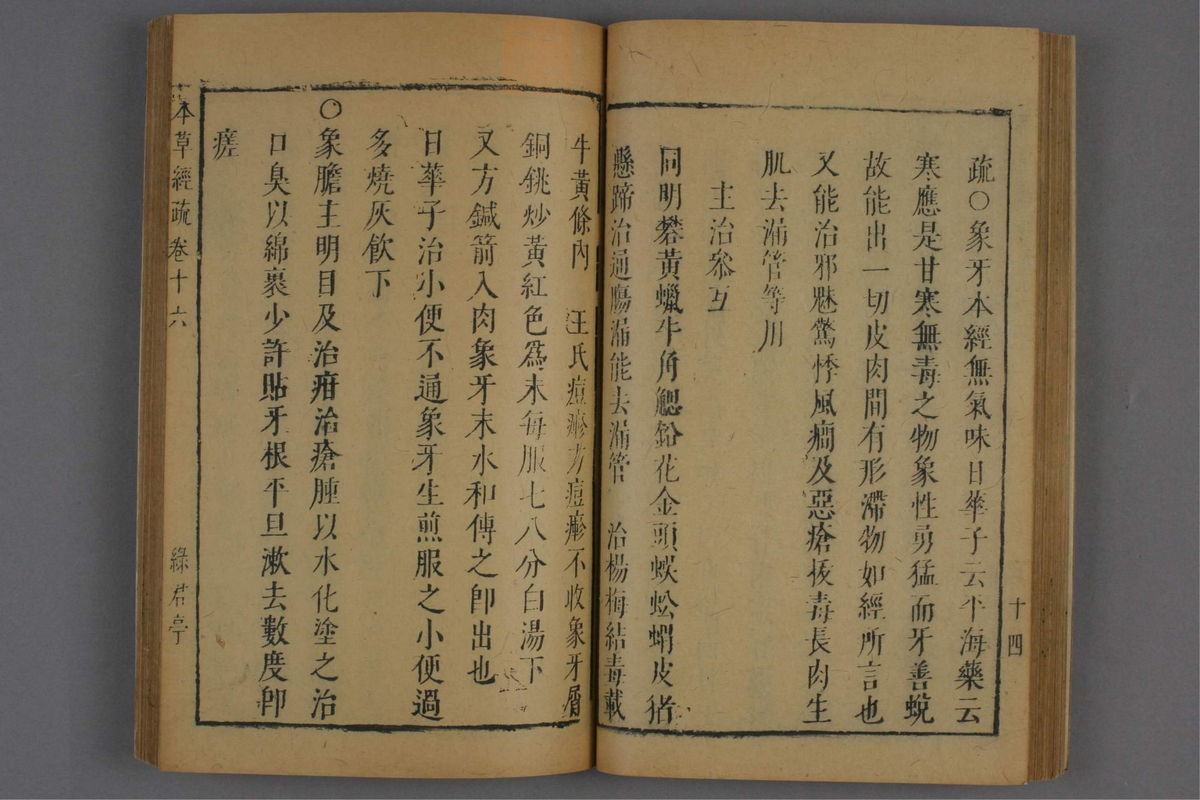 十四
疏○象牙本經無氣味日華子云平海藥云
寒應是甘寒無毒之物象性勇猛而牙善蛻
故能出一切皮肉間有形滯物如經所言也
又能治邪魅驚悸風癎及惡瘡拔毒長肉生
肌去漏管等用
主治參互
同明礬黃蠟牛角䚡鉛花金頭蜈蚣蝟皮猪
懸蹄治通腸漏能去漏管　治楊梅結毒載
牛黃條內　王氏痘瘮方痘瘮不收象牙屑
銅銚炒黃紅色爲末每服七八分白湯下
又方鍼箭入肉象牙末水和傅之卽出也
日華子治小便不通象牙生煎服之小便過
多燒灰飲下
○象膽主明目及治疳治瘡腫以水化塗之治
口臭以綿裹少許貼牙根平旦漱去數度卽
瘥
本草經疏卷十六
綠君亭